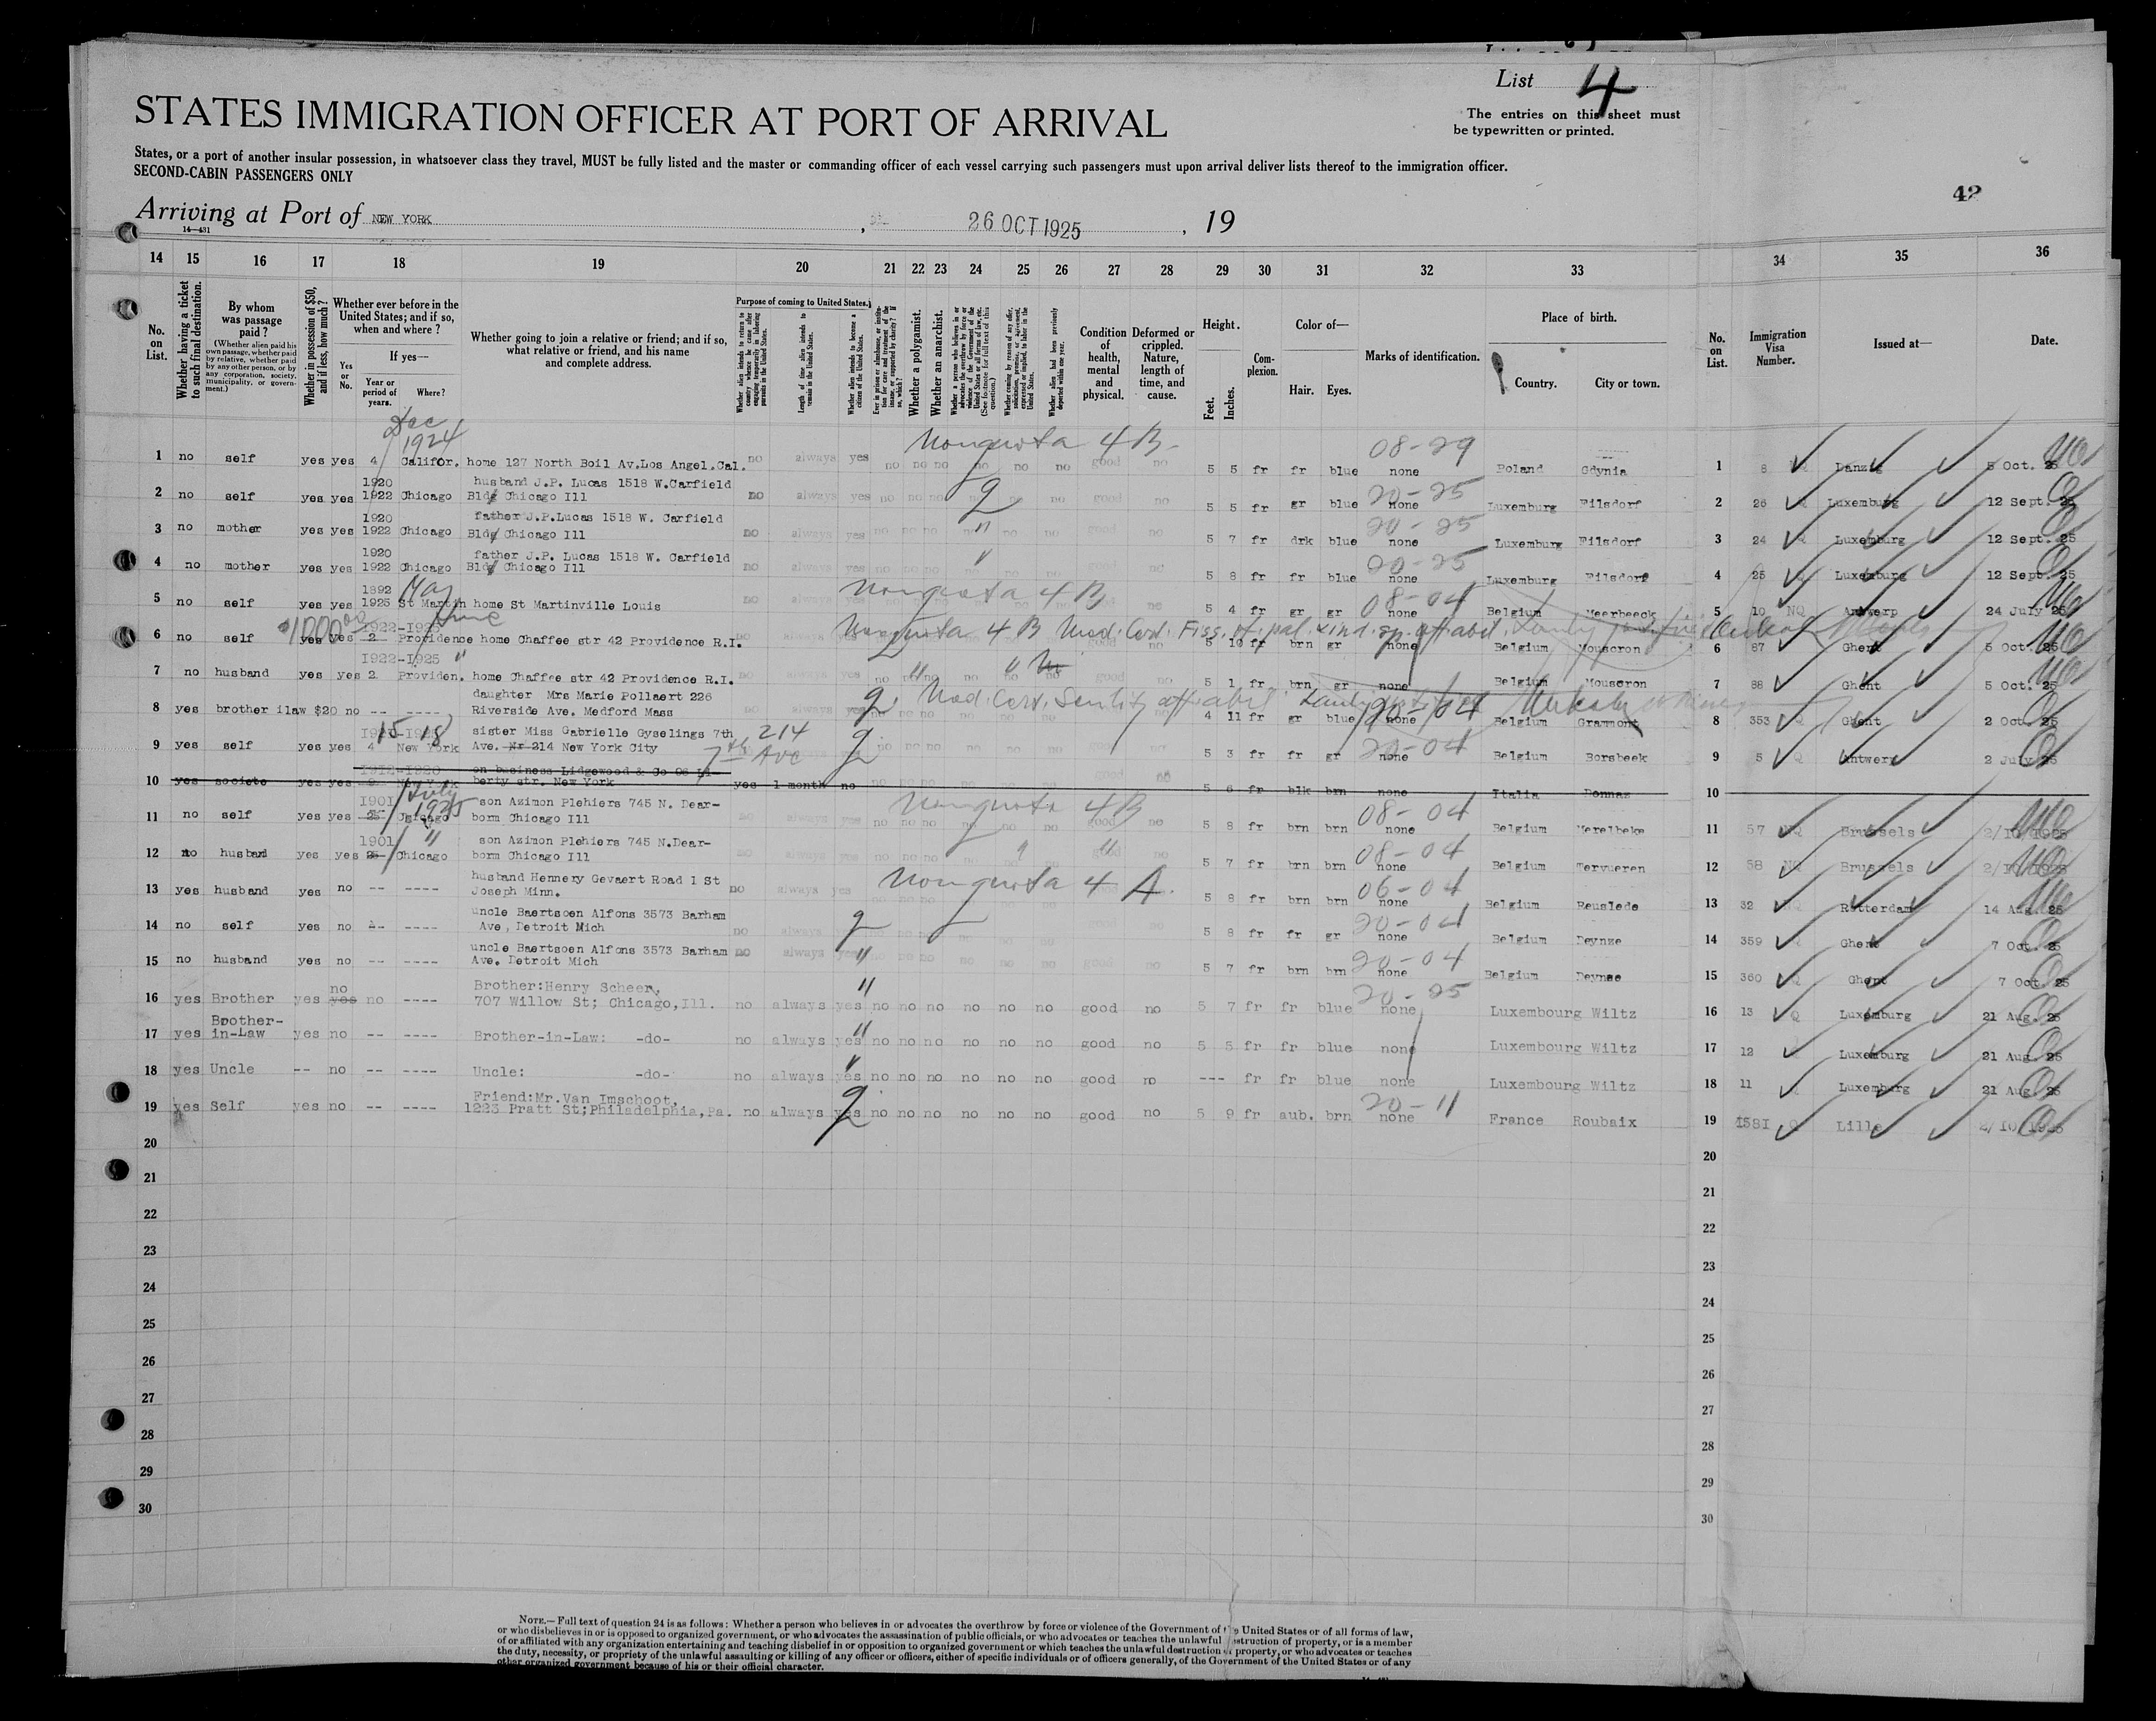 List 4
The entries on this sheet must
be typewritten or printed.
STATES IMMIGRATION OFFICER AT PORT OF ARRIVAL
States, or a port of another insular possession, in whatsoever class they travel, MUST be fully listed and the master or commanding officer of each vessel carrying such passengers must upon arrival deliver lists thereof to the immigration officer.
SECOND-CABIN PASSENGERS ONLY
42
Arriving at Port of NEW YORK, 26 OCT 1925, 19
14—431
14 15 16 17 18 19 20 21 22 23 24 25 26 27 28 29 30 31 32 33 34 35 36
No. on List.
Whether having a ticket to such final destination.
By whom was passage paid?
(Whether alien paid his own passage, whether paid by relative, whether paid by any other person, or by any corporation, society, municipality, or government.)
Whether in possession of $50, and if less, how much?
Whether ever before in the United States; and if so, when and where?
Yes or No.
If yes—
Year or period of years.
Where?
Whether going to join a relative or friend; and if so, what relative or friend, and his name and complete address.
Purpose of coming to United States.
Whether alien intends to return to country whence he came after engaging temporarily in laboring pursuits in the United States.
Length of time alien intends to remain in the United States.
Whether alien intends to become a citizen of the United States.
Ever in prison or almshouse, or institution for care and treatment of the insane, or supported by charity? If so, which?
Whether a polygamist.
Whether an anarchist.
Whether a person who believes in or advocates the overthrow by force or violence of the Government of the United States or all forms of law, etc. (See footnote for full text of this question.)
Whether coming by reason of any offer, solicitation, promise, or agreement, expressed or implied, to labor in the United States.
Whether alien had been previously deported within one year.
Condition of health, mental and physical.
Deformed or crippled. Nature, length of time, and cause.
Height.
Feet. Inches.
Complexion.
Color of—
Hair. Eyes.
Marks of identification.
Place of birth.
Country. City or town.
No. on List.
Immigration Visa Number.
Issued at—
Date.
Dec 1924 Nonquota 4B- 08-29
1 no self yes yes 4 Califor. home 127 North Boil Av.Los Angel.Cal. no always yes no no no no no no good no 5 5 fr fr blue none Poland Gdynia 1 8 5 Oct. 25
1920 husband J.P. Lucas 1518 W.Carfield 20-25
2 no self yes yes 1922 Chicago Bldg Chicago Ill no always yes no no no no no good no 5 5 fr gr blue none Luxemburg Filsdorf 2 26 Luxemburg 12 Sept. 25
1920 father J.P.Lucas 1518 W. Carfield 20-25
3 no mother yes yes 1922 Chicago Bldg Chicago Ill no always yes no no no no no good no 5 7 fr drk blue none Luxemburg Filsdorf 3 24 Luxemburg 12 Sept. 25
1920 father J.P. Lucas 1518 W. Carfield 20-25
4 no mother yes yes 1922 Chicago Bldg Chicago Ill no always yes no no no no no no good no 5 8 fr fr blue none Luxemburg Filsdorf 4 25 Luxemburg 12 Sept. 25
1892 May Nonquota 4B 08-04
5 no self yes yes 1925 St Martin home St Martinville Louis no always 5 4 fr gr gr none Belgium Meerbeeck 5 10 NQ Antwerp 24 July 25
$1000.00 1922-1925 June Nonquota 4B Med. Cert.
6 no self yes yes 2 Providence home Chaffee str 42 Providence R.I. 5 10 fr brn gr none Belgium Mouscron 6 87 Ghent 5 Oct. 25
1922-1925 "
7 no husband yes yes 2 Providen. home Chaffee str 42 Providence R.I. no always yes no good no 5 1 fr brn gr none Belgium Mouscron 7 88 Ghent 5 Oct. 25
daughter Mrs Marie Pollaert 226 Med. Cert. Senility
8 yes brother ilaw $20 no -- ---- Riverside Ave. Medford Mass no always yes 4 11 fr gr blue none 20-04 Belgium Grammont 8 353 Ghent 2 Oct. 25
15 18 sister Miss Gabrielle Gyselings 7th 214 7th Ave 20-04
9 yes self yes yes 4 New York Ave. Nr 214 New York City no no no no no no 5 3 fr fr gr none Belgium Borsbeek 9 5 Antwerp 2 July 25
1912-1920 on business Lidgewood & Co 96 Li-
10 yes societe yes yes 9 New York berty str. New York yes 1 month no good no 5 6 fr blk brn none Italia Donnaz 10
1901 July 1925 son Azimon Plehiers 745 N. Dear- Nonquota 4B 08-04
11 no self yes yes 25 Chicago born Chicago Ill no always yes no no no no no no good no 5 8 fr brn brn none Belgium Merelbeke 11 57 Brussels 2/10 1925
1901 " son Azimon Plehiers 745 N.Dear- 08-04
12 no husband yes yes 25 Chicago born Chicago Ill no always yes no no no no good no 5 7 fr brn brn none Belgium Tervueren 12 58 Brussels 2/10 1925
husband Hennery Gevaert Road 1 St Nonquota 4 A. 06-04
13 yes husband yes no -- ---- Joseph Minn. no always yes 5 8 fr brn brn none Belgium Reuslede 13 32 Rotterdam 14 Aug. 25
uncle Baertsoen Alfons 3573 Barham 20-04
14 no self yes no -- ---- Ave, Detroit Mich no always 5 8 fr fr gr none Belgium Deynze 14 359 Ghent 7 Oct. 25
uncle Baertsoen Alfons 3573 Barham " 20-04
15 no husband yes no -- ---- Ave. Detroit Mich no always yes no no no no no no good no 5 7 fr brn brn none Belgium Deynze 15 360 Ghent 7 Oct. 25
no Brother:Henry Scheer, " 20-25
16 yes Brother yes yes no ---- 707 Willow St; Chicago,Ill. no always yes no no no no no no good no 5 7 fr fr blue none Luxembourg Wiltz 16 13 Q Luxemburg 21 Aug. 25
Brother- "
17 yes in-Law yes no -- ---- Brother-in-Law: -do- no always yes no no no no no no good no 5 5 fr fr blue none Luxembourg Wiltz 17 12 Luxemburg 21 Aug. 25
18 yes Uncle -- no -- ---- Uncle: -do- no always yes no no no no no no good no --- fr fr blue none Luxembourg Wiltz 18 11 Luxemburg 21 Aug. 25
Friend:Mr.Van Imschoot, 20-11
19 yes Self yes no -- ---- 1223 Pratt St;Philadelphia,Pa. no always yes no no no no no no good no 5 9 fr aub. brn none France Roubaix 19 1581 Q Lille 2/10 1925
20 20
21 21
22 22
23 23
24 24
25 25
26 26
27 27
28 28
29 29
30 30
NOTE.—Full text of question 24 is as follows: Whether a person who believes in or advocates the overthrow by force or violence of the Government of United States or of all forms of law,
or who disbelieves in or is opposed to organized government, or who advocates the assassination of public officials, or who advocates or teaches the unlawful destruction of property, or is a member
of or affiliated with any organization entertaining and teaching disbelief in or opposition to organized government or which teaches the unlawful destruction of property, or who advocates or teaches
the duty, necessity, or propriety of the unlawful assaulting or killing of any officer or officers, either of specific individuals or of officers generally, of the Government of the United States or of any
other organized government because of his or their official character.